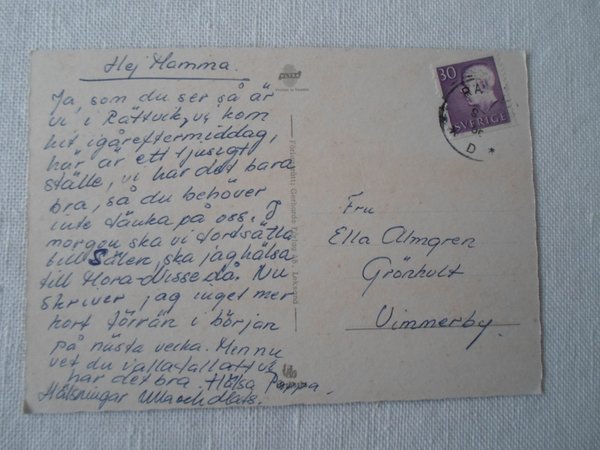 Hej Mamma.
Ja, som du ser så är
vi i Rättvik, vi kom
hit igåreftermiddag,
här är ett tjusigt
ställe, vi har det bara
bra, så du behöver
inte tänka på oss. I
morgon ska vi fortsätta
till Sälen, ska jag hälsa
till Mora-Nisse då. Nu
skriver jag inget mer
kort förrän i början
på nästa vecka. Men nu
vet du i alla fall att vi
har det bra. Hälsa Pappa.
Hälsningar Ulla och Mats.
ULTRA
Förlag
Leksand
30
SVERIGE
RÄ
D
Fru
Ella Almgren
Grönhult
Vimmerby.